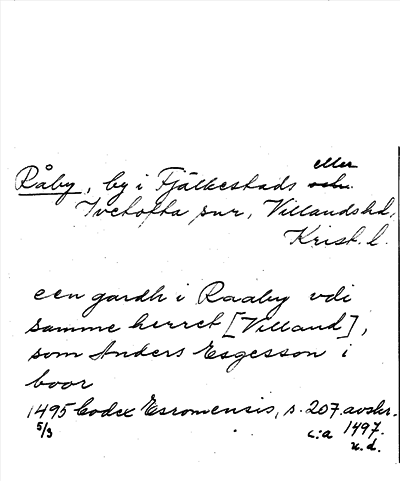 eller
Råby, by i Fjälkestads och
Ivetofta snr, Villands hd,
Krist. l.
een gardh i Raaby vdi
samme herret [Villand],
som Anders Esgesson i
boor
1495 Codex Esromensis, s. 207. avskr.
5/3 c:a 1497.
u.d.